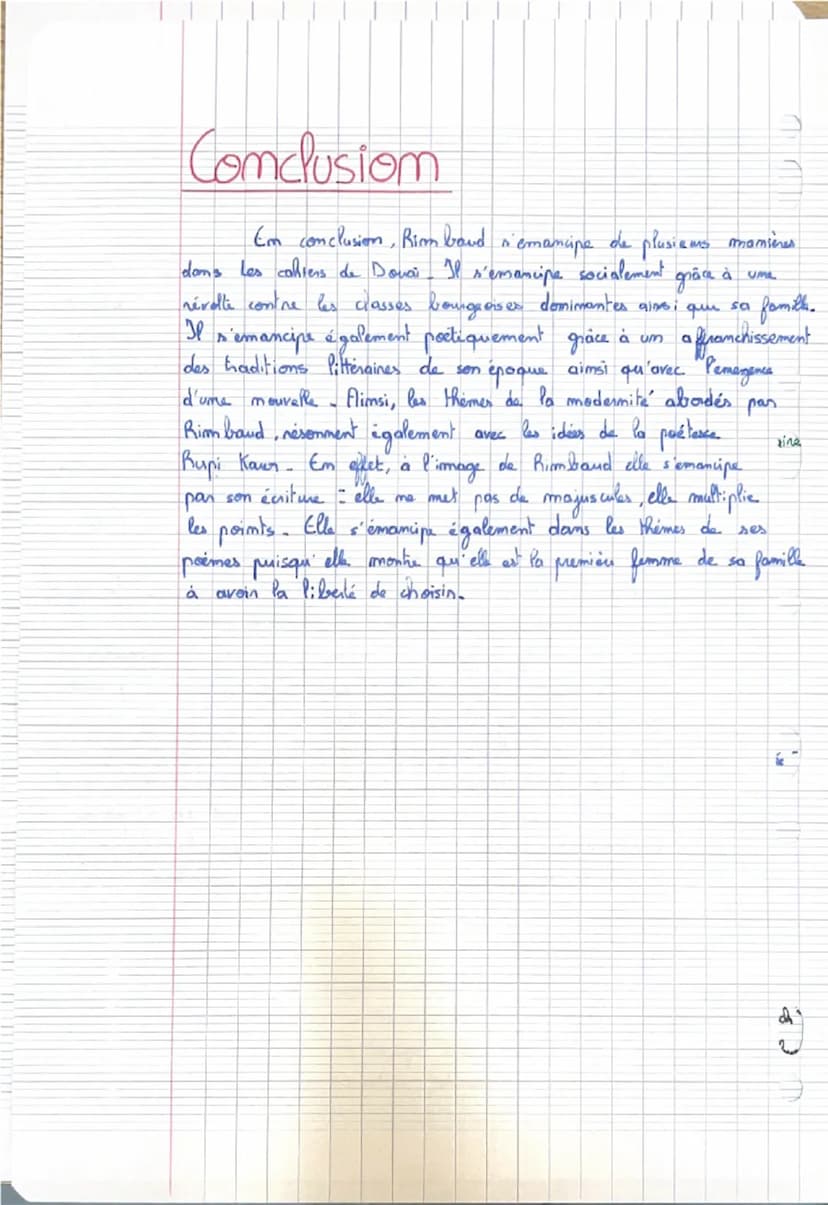 Conclusion
En conclusion, Rimbaud s'emancipe de plusieurs manières
dans les cahiers de Douai. Il s'emancipe socialement grâce à une
révolte contre les classes bourgeoises dominantes ainsi que sa famille.
Il s'emancipe également poétiquement grâce à un affranchissement
des traditions littéraires de son époque ainsi qu'avec l'émergence
d'une nouvelle. Ainsi, les thèmes de la modernité abordés par
Rimbaud, résonnent également avec les idées de la poétesse
Rupi Kaur. En effet, à l'image de Rimbaud elle s'emancipe
par son écriture : elle ne met pas de majuscules, elle multiplie
les points. Elle s'émancipe également dans les thèmes de ses
poèmes puisqu'elle montre qu'elle est la première femme de sa famille
à avoir la liberté de choisir.